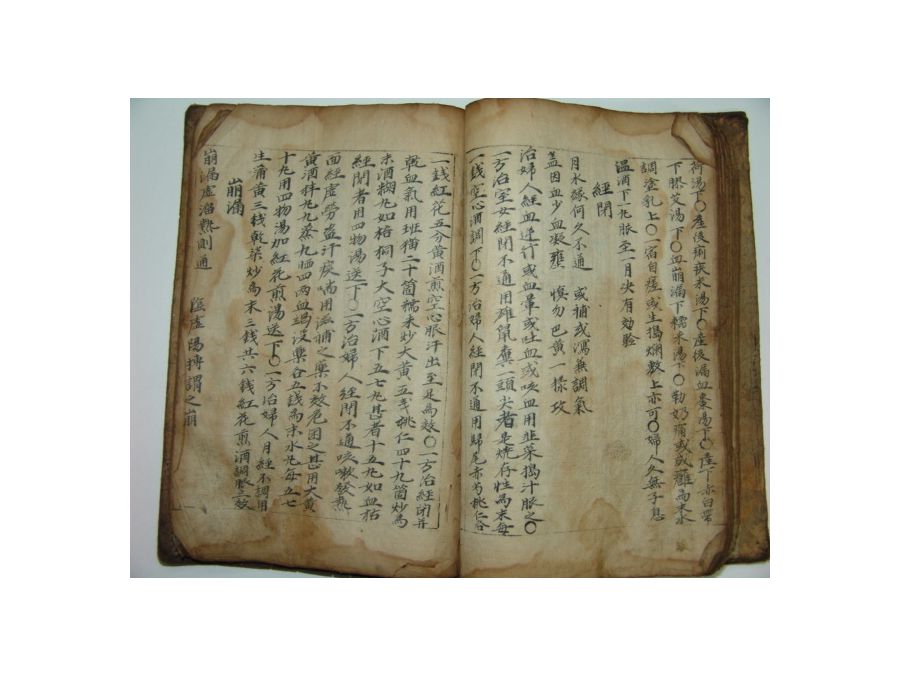 荷湯下〇產後痢疾米湯下〇產後漏血棗湯下〇陰下赤白帶
下膠艾湯下〇血崩漏下糯米湯下〇勒奶痛或成癰為末水
調塗乳上〇宿自瘥或生搗爛敷上亦可〇婦人久無子息
溫酒下一九服至一月決有効驗
經閉
月水緣何久不通 或補或瀉兼調氣
蓋因血少血凝壅 慎勿巴黃一樣攻
治婦人經血逆行或血暈或吐血或咳血用韭菜搗汁服之〇
一方治室女經閉不通用雄鼠糞一頭尖者是燒存性為末每
一錢空心酒調下〇一方治婦人經閉不通用歸尾赤芍桃仁各
一錢紅花五分黃酒煎空心服汗出至足為效〇一方治經閉并
乾血氣用班猫二十箇糯米炒大黃五戔桃仁四十九箇炒為
末酒糊丸如梧桐子大空心酒下五七丸甚者十五丸如血枯
經閉者用四物湯送下〇一方治婦人經閉不通咳嗽發熱
面經虛勞盜汗痰喘用滋補之藥不效危困之甚用大黃
黃酒拌九九蒸九晒四兩血竭沒藥各五錢為末水丸每五七
十丸用四物湯加紅花煎湯送下〇一方治婦人月經不調用
生蒲黃三錢乾柒炒為末三錢共六錢紅花煎酒調服三效
崩漏
崩漏虛溜熱則通 陰虛陽搏謂之崩